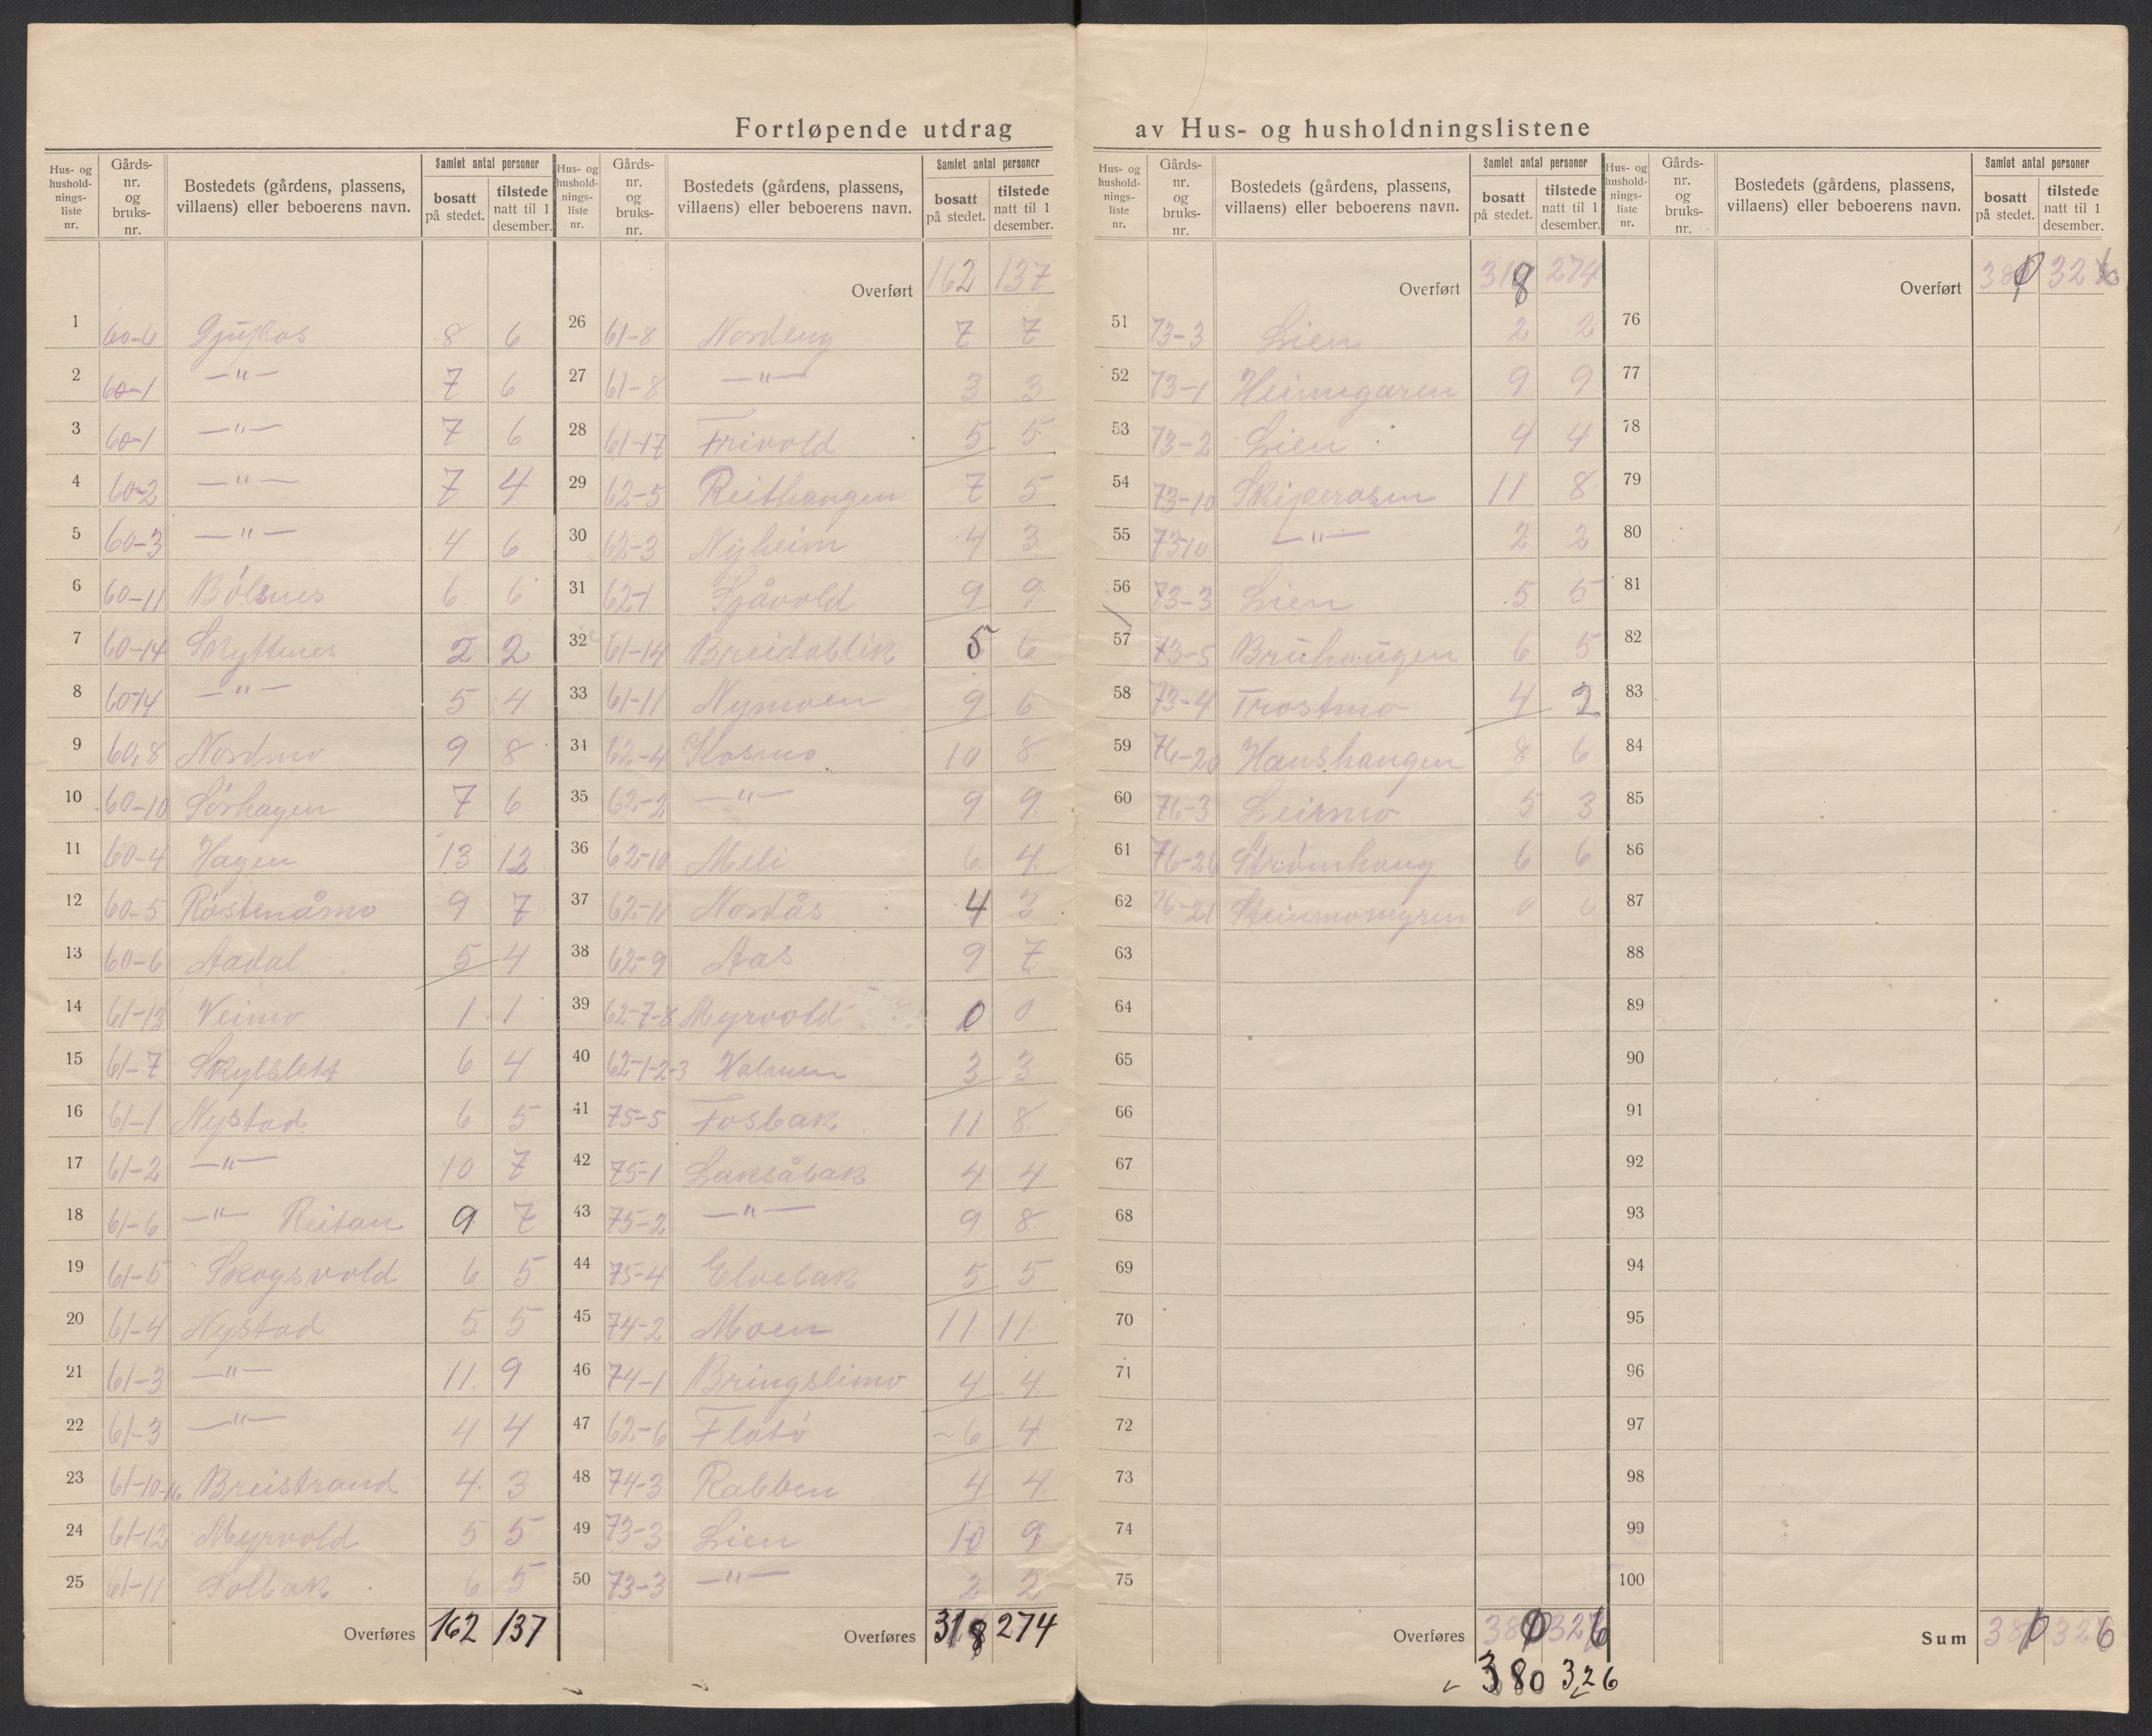 Fortløpende utdrag av Hus- og husholdningslistene
Hus- og husholdningsliste nr. | Gårds-nr. og bruks-nr. | Bostedets (gårdens, plassens, villaens) eller beboerens navn. | Samlet antal personer bosatt på stedet. | tilstede natt til 1 desember.
1 60-6 8 6
2 60-1 —"— 7 6
3 60-1 —"— 7 6
4 60-2 —"— 7 4
5 60-3 —"— 4 6
6 60-11 Bölsnes 6 6
7 60-14 Skyttnes 2 2
8 60-14 —"— 5 4
9 60,8 Nordmo 9 8
10 60-10 Sörhagen 7 6
11 60-4 Hagen 13 12
12 60-5 Röstenåmo 9 7
13 60-6 Aadal 5 4
14 61-13 Veimo 1 1
15 61-7 Skylslett 6 4
16 61-1 Nystad 6 5
17 61-2 —"— 10 7
18 61-6 —"— Reitan 9 7
19 61-5 Skogsvold 6 5
20 61-4 Nystad 5 5
21 61-3 —"— 11 9
22 61-3 —"— 4 4
23 61-10-16 Breistrand 4 3
24 61-12 Myrvold 5 5
25 61-11 Solbak 6 5
Overføres 162 137
Hus- og husholdningsliste nr. | Gårds-nr. og bruks-nr. | Bostedets (gårdens, plassens, villaens) eller beboerens navn. | Samlet antal personer bosatt på stedet. | tilstede natt til 1 desember.
Overført 162 137
26 61-8 Nordeng 7 7
27 61-8 —"— 3 3
28 61-17 Frivold 5 5
29 62-5 Reithaugen 7 5
30 62-3 Nyheim 4 3
31 62-1 Sjåvold 9 9
32 61-14 Breidablik 5 6
33 61-11 Nymoen 9 6
34 62-4 Kosmo 10 8
35 62-2 —"— 9 9
36 62-10 Meli 6 4
37 62-11 Nordås 4 3
38 62-9 Aas 9 7
39 62-7-8 Myrvold 0 0
40 62-1-2-3 Valnen 3 3
41 75-5 Fosbak 11 8
42 75-1 Laksåbak 4 4
43 75-2 —"— 9 8
44 75-4 Elvebak 5 5
45 74-2 Moen 11 11
46 74-1 Bringslimo 4 4
47 62-6 Flatö 6 4
48 74-3 Rabben 4 4
49 73-3 Lien 10 9
50 73-3 —"— 2 2
Overføres 318 274
Hus- og husholdningsliste nr. | Gårds-nr. og bruks-nr. | Bostedets (gårdens, plassens, villaens) eller beboerens navn. | Samlet antal personer bosatt på stedet. | tilstede natt til 1 desember.
Overført 318 274
51 73-3 Lien 2 2
52 73-1 Heimegaren 9 9
53 73-2 Lien 4 4
54 73-10 Skiperåsen 11 8
55 73-10 —"— 2 2
56 73-3 Lien 5 5
57 73-5 Bruhaugen 6 5
58 73-4 Trostmo 4 2
59 76-20 Haushaugen 8 6
60 76-3 Leirmo 5 3
61 76-26 Strömhaug 6 6
62 76-21 Steinmomyren 0 0
63
64
65
66
67
68
69
70
71
72
73
74
75
Overføres 380 326
380 326
Hus- og husholdningsliste nr. | Gårds-nr. og bruks-nr. | Bostedets (gårdens, plassens, villaens) eller beboerens navn. | Samlet antal personer bosatt på stedet. | tilstede natt til 1 desember.
Overført 380 326
76
77
78
79
80
81
82
83
84
85
86
87
88
89
90
91
92
93
94
95
96
97
98
99
100
Sum 380 326